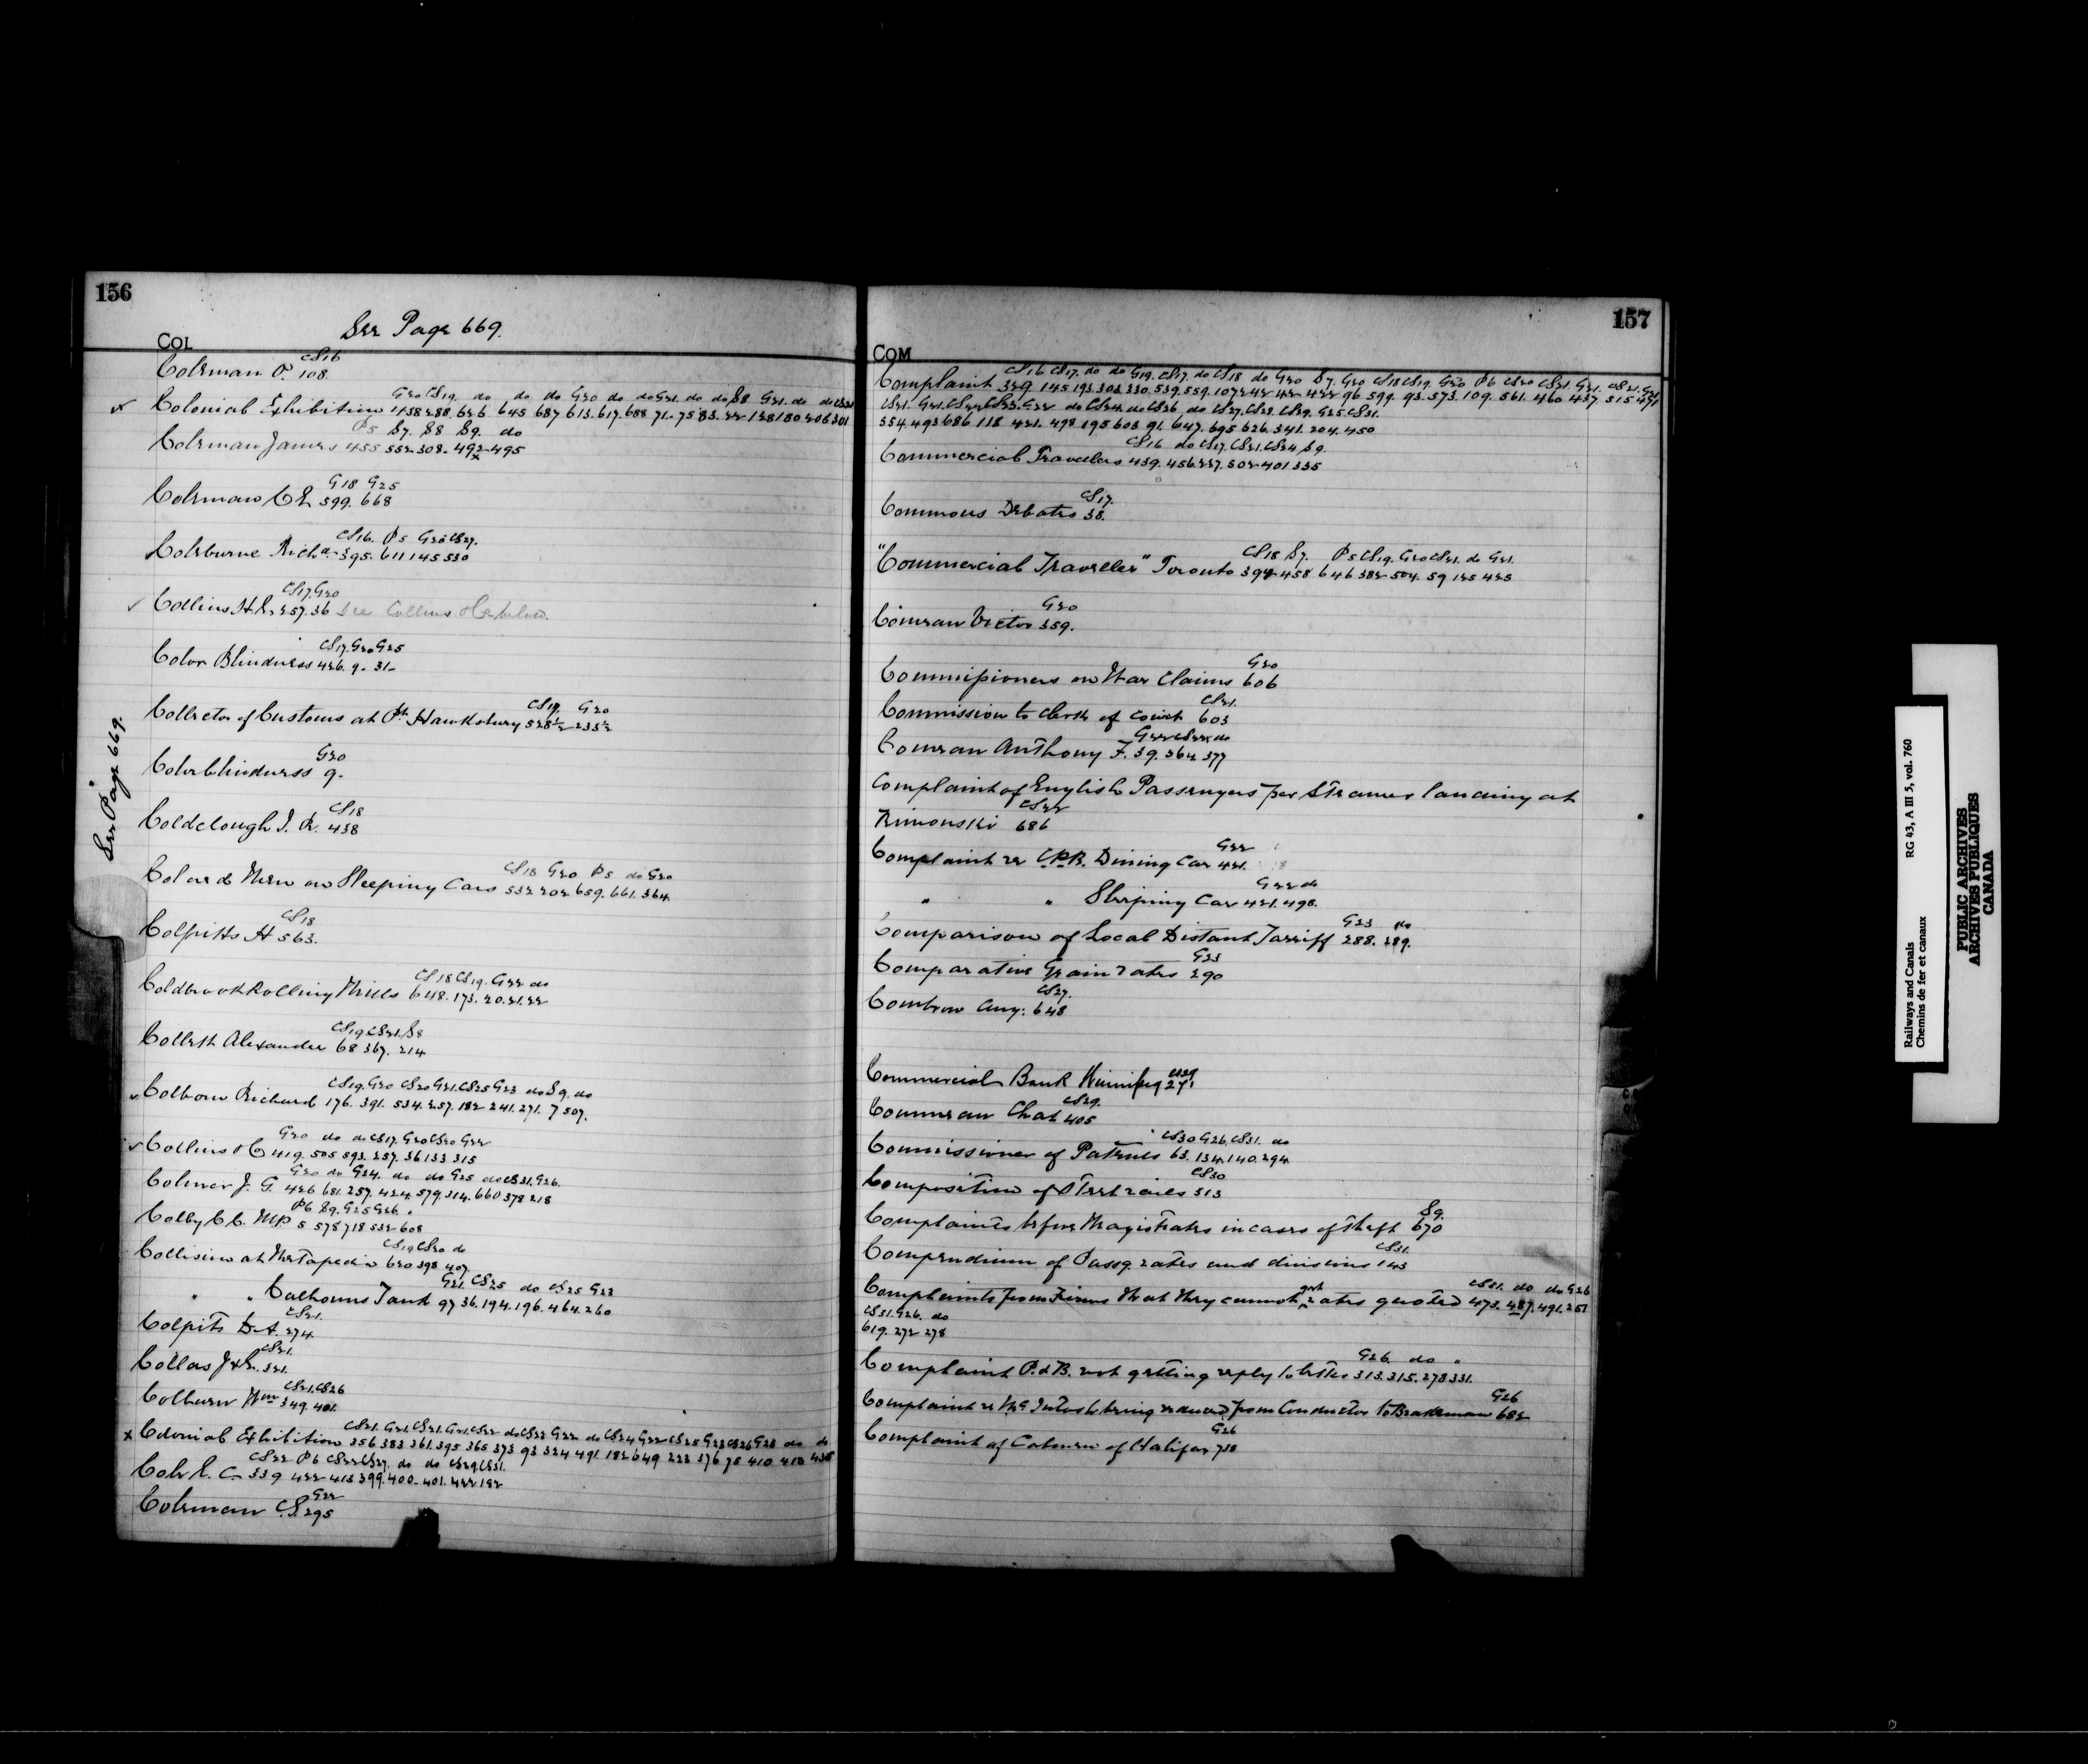 156
See Page 669.
COL
CS16
Coleman P. 108
G20 CS19. do do do G20 do do G21. do do S8 G21. do do CS21
Colonial Exhibition 458 288. 626 645 687 613. 617. 688 71. 75 83. 22 128 180 206 301
P5 S7. S8 S9. do
Coleman James 455 552 308. 492 495
G18 G25
Coleman C E 599. 668
CS16. P5 G20 CS27.
Coleburne Richd 395. 611 145 530
CS17. G20
Collins H. C. 257. 36 See Collins H C below.
CS17. G20 G25
Color Blindness 426. 9. 31
CS17. G20
Collector of Customs at Pt Hawksbury 528½ 235½
G20
Color blindness 9.
CS18
Coldclough J. R. 438
CS18 G20 P5 do G20
Colored Men on Sleeping Cars 532 202 659. 661. 364.
CS18
Colpitts H 563.
CS18 CS19. G22 do
Coldbrook Rolling Mills 648. 173. 20. 21. 22
CS19 CS21. S8
Colleth Alexander 68 367. 214
CS19. G20 CS20 G21. CS25 G23 do S9. do
Colborn Richard 176. 391. 534. 257. 182 241. 271. 7 507.
G20 do do CS17. G20 CS20 G22
Collins H C 419. 505 593. 257. 36 133 315
G20 do G24. do do G25 do CS31. G26.
Colmer J. G. 426 681. 257. 424. 579. 314. 660 378 218
P6 S9. G25 G26.
Colby C C. MP 5 578 718 532 608
CS19 CS20 do
Collision at Metapedia 620 398 407.
G21. CS25 do CS25 G23
" " Calhouns Tank 97 36. 194. 196. 464. 260
CS21.
Colpits D. A. 274.
CS21.
Collas J & E. 321.
CS21. CS26
Colburn Wm 349. 401.
CS21. G21. CS21. G21. CS22 do CS22 G22 do CS24 G22 CS25 G23 CS26 G23 do do
Colonial Exhibition 356 383 361. 395 365 373 93 324 491. 182 649 223 376 75 410 418 438
CS22 P6 CS22 CS27. do do CS29 CS31.
Cole E. C 339 422 413 399. 400. 401. 422 192
G22
Coleman C. S. 295
See Page 669.
157
COM
CS16 CS17. do do G19. CS17. do CS18 do G20 S7. G20 CS18 CS19. G20 P6 CS20 CS21. G21. CS21. G21
Complaint 329. 145. 193. 303. 330. 539. 559. 107 242 42 422 96 599. 93. 573. 109. 561. 460 437. 515 471
CS21. G21. CS22 CS23. G22 do CS24. do CS26 do CS27. CS28. CS29. G25. CS31.
354. 493 686 118 421. 498 195 603 91. 647. 695 626. 341. 204. 450
CS16 do CS17. CS21. CS24 S9.
Commercial Travelers 439. 456. 227. 502 401 335
CS17.
Commons Debates 38.
CS18 S7. P5 CS19. G20 CS21. do G21.
"Commercial Traveller" Toronto 394 458 646 382 504. 59 125 425
G20
Comeau Victor 359.
G20
Commissioners on War Claims 606
CS21.
Commission to clerk of Court 603
G22 CS22 do
Comeau Anthony F. 39. 364. 377
Complaint of English Passengers per Steamer landing at
CS22
Rimouski 686
G22
Complaint re C.P.R. Dining Car 421.
G22 do
" " Sleeping Car 421. 498.
G23 do
Comparison of Local Distant Tarriff 288. 289.
G23
Comparative Grain rates 290
CS27.
Combrow Aug: 648
CS29
Commercial Bank Winnipeg 271
CS29.
Commeau Chat 405
CS30 G26. CS31. do
Commissioner of Patents 63. 134. 140. 294.
CS30
Composition of Steel rails 313
S9.
Complaints before Magistrates in cases of theft 670
CS31.
Compendium of Passg. rates and divisions 143
get CS31. do do G26
Complaints from Firms that they cannot rates quoted 473. 487. 491. 251
CS31. G26. do
619. 272 278
G26. do "
Complaint P. & B. not getting reply to letter 313. 315. 278 331.
G26
Complaint re McIntosh being reduced from Conductor to Brakeman 682
G26
Complaint of Cabmen of Halifax 738
Railways and Canals RG 43, A III 5, vol. 760
Chemins de fer et canaux
PUBLIC ARCHIVES
ARCHIVES PUBLIQUES
CANADA